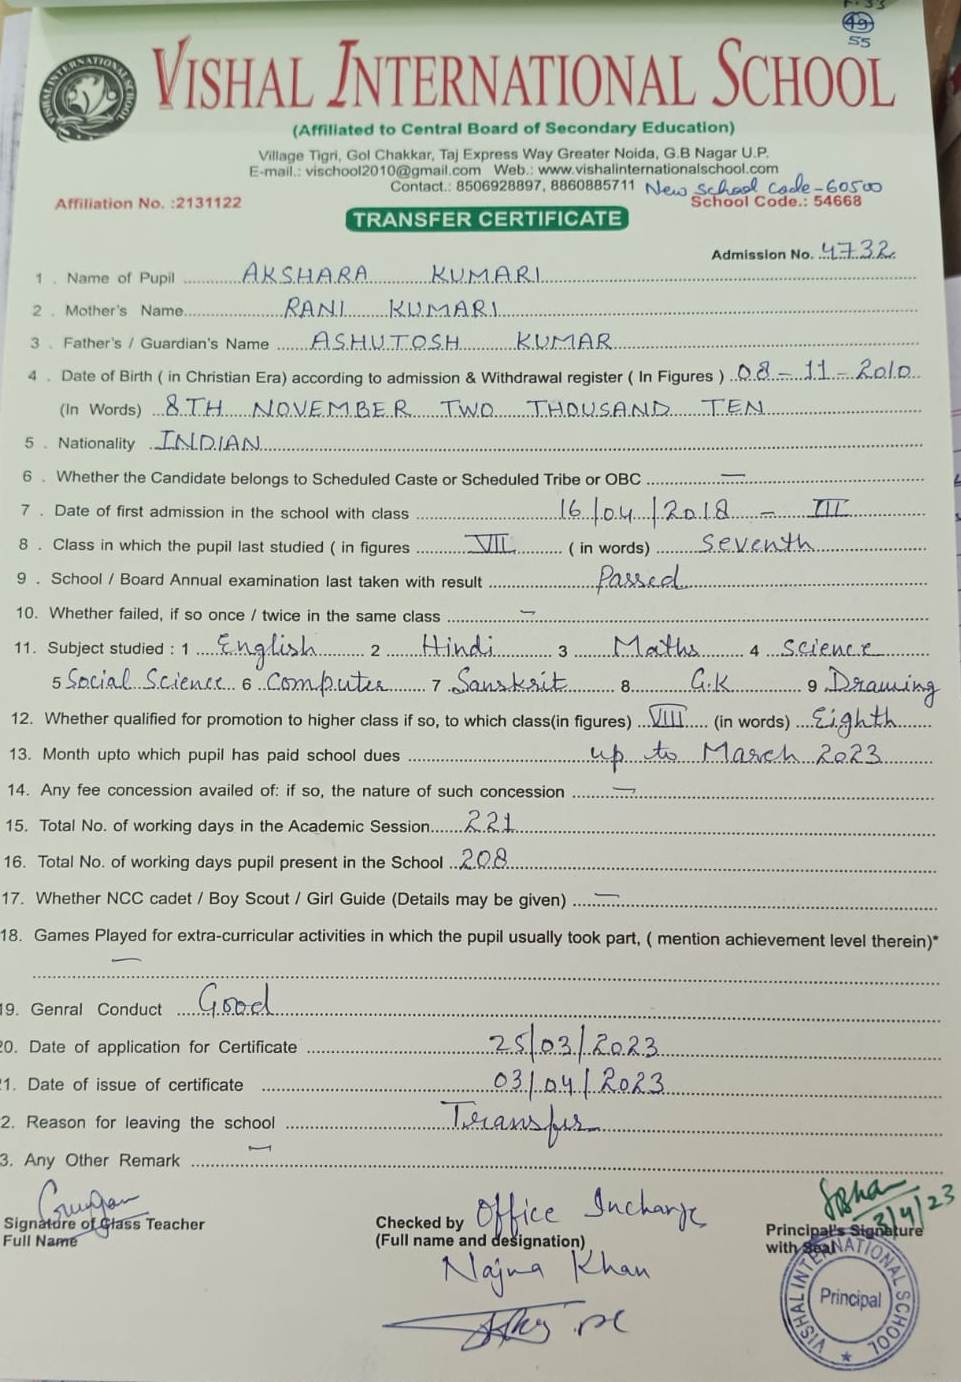 49
55
VISHAL INTERNATIONAL SCHOOL
(Affiliated to Central Board of Secondary Education)
Village Tigri, Gol Chakkar, Taj Express Way Greater Noida, G.B Nagar U.P.
E-mail.: vischool2010@gmail.com Web.: www.vishalinternationalschool.com
Contact.: 8506928897, 8860885711 New School Code - 60500
Affiliation No. :2131122 TRANSFER CERTIFICATE School Code.: 54668
Admission No. 4732
1 . Name of Pupil AKSHARA KUMARI
2 . Mother's Name RANI KUMARI
3 . Father's / Guardian's Name ASHUTOSH KUMAR
4 . Date of Birth ( in Christian Era) according to admission & Withdrawal register ( In Figures ) 08 - 11 - 2010
(In Words) 8TH NOVEMBER TWO THOUSAND TEN
5 . Nationality INDIAN
6 . Whether the Candidate belongs to Scheduled Caste or Scheduled Tribe or OBC —
7 . Date of first admission in the school with class 16/04/2018 - III
8 . Class in which the pupil last studied ( in figures VII ( in words) Seventh
9 . School / Board Annual examination last taken with result Passed
10. Whether failed, if so once / twice in the same class —
11. Subject studied : 1 English 2 Hindi 3 Maths 4 Science
5 Social Science 6 Computer 7 Sanskrit 8 G.K 9 Drawing
12. Whether qualified for promotion to higher class if so, to which class(in figures) VIII (in words) Eighth
13. Month upto which pupil has paid school dues up to March 2023
14. Any fee concession availed of: if so, the nature of such concession —
15. Total No. of working days in the Academic Session 221
16. Total No. of working days pupil present in the School 208
17. Whether NCC cadet / Boy Scout / Girl Guide (Details may be given) —
18. Games Played for extra-curricular activities in which the pupil usually took part, ( mention achievement level therein)*
—
19. Genral Conduct Good
20. Date of application for Certificate 25/03/2023
21. Date of issue of certificate 03/04/2023
2. Reason for leaving the school Transfer
3. Any Other Remark —
Signature of Class Teacher
Full Name
Checked by Office Incharge
(Full name and designation)
Najma Khan
3/4/23
Principal's Signature
with Seal
VISHAL INTERNATIONAL SCHOOL
Principal